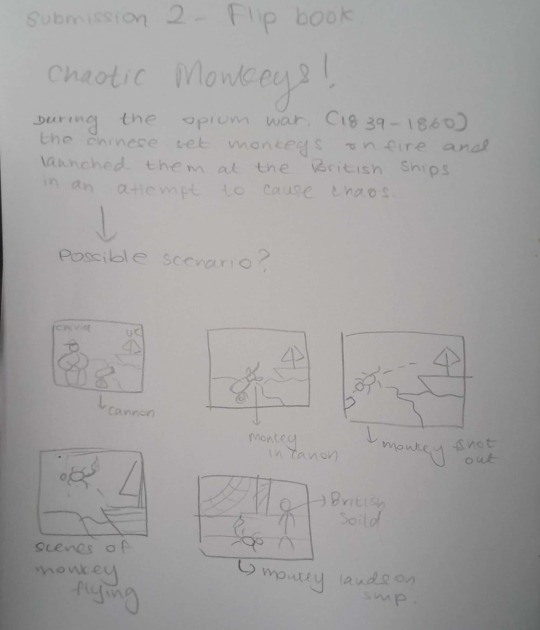 Submission 2 - Flip book
Chaotic Monkeys!
During the opium war. (1839-1860)
the chinese set monkeys on fire and
launched them at the British ships
in an attempt to cause chaos.
Possible scenario?
China
UK
cannon
monkey
in canon
monkey shot
out
scenes of
monkey
flying
British
Soild
monkey lands on
ship.